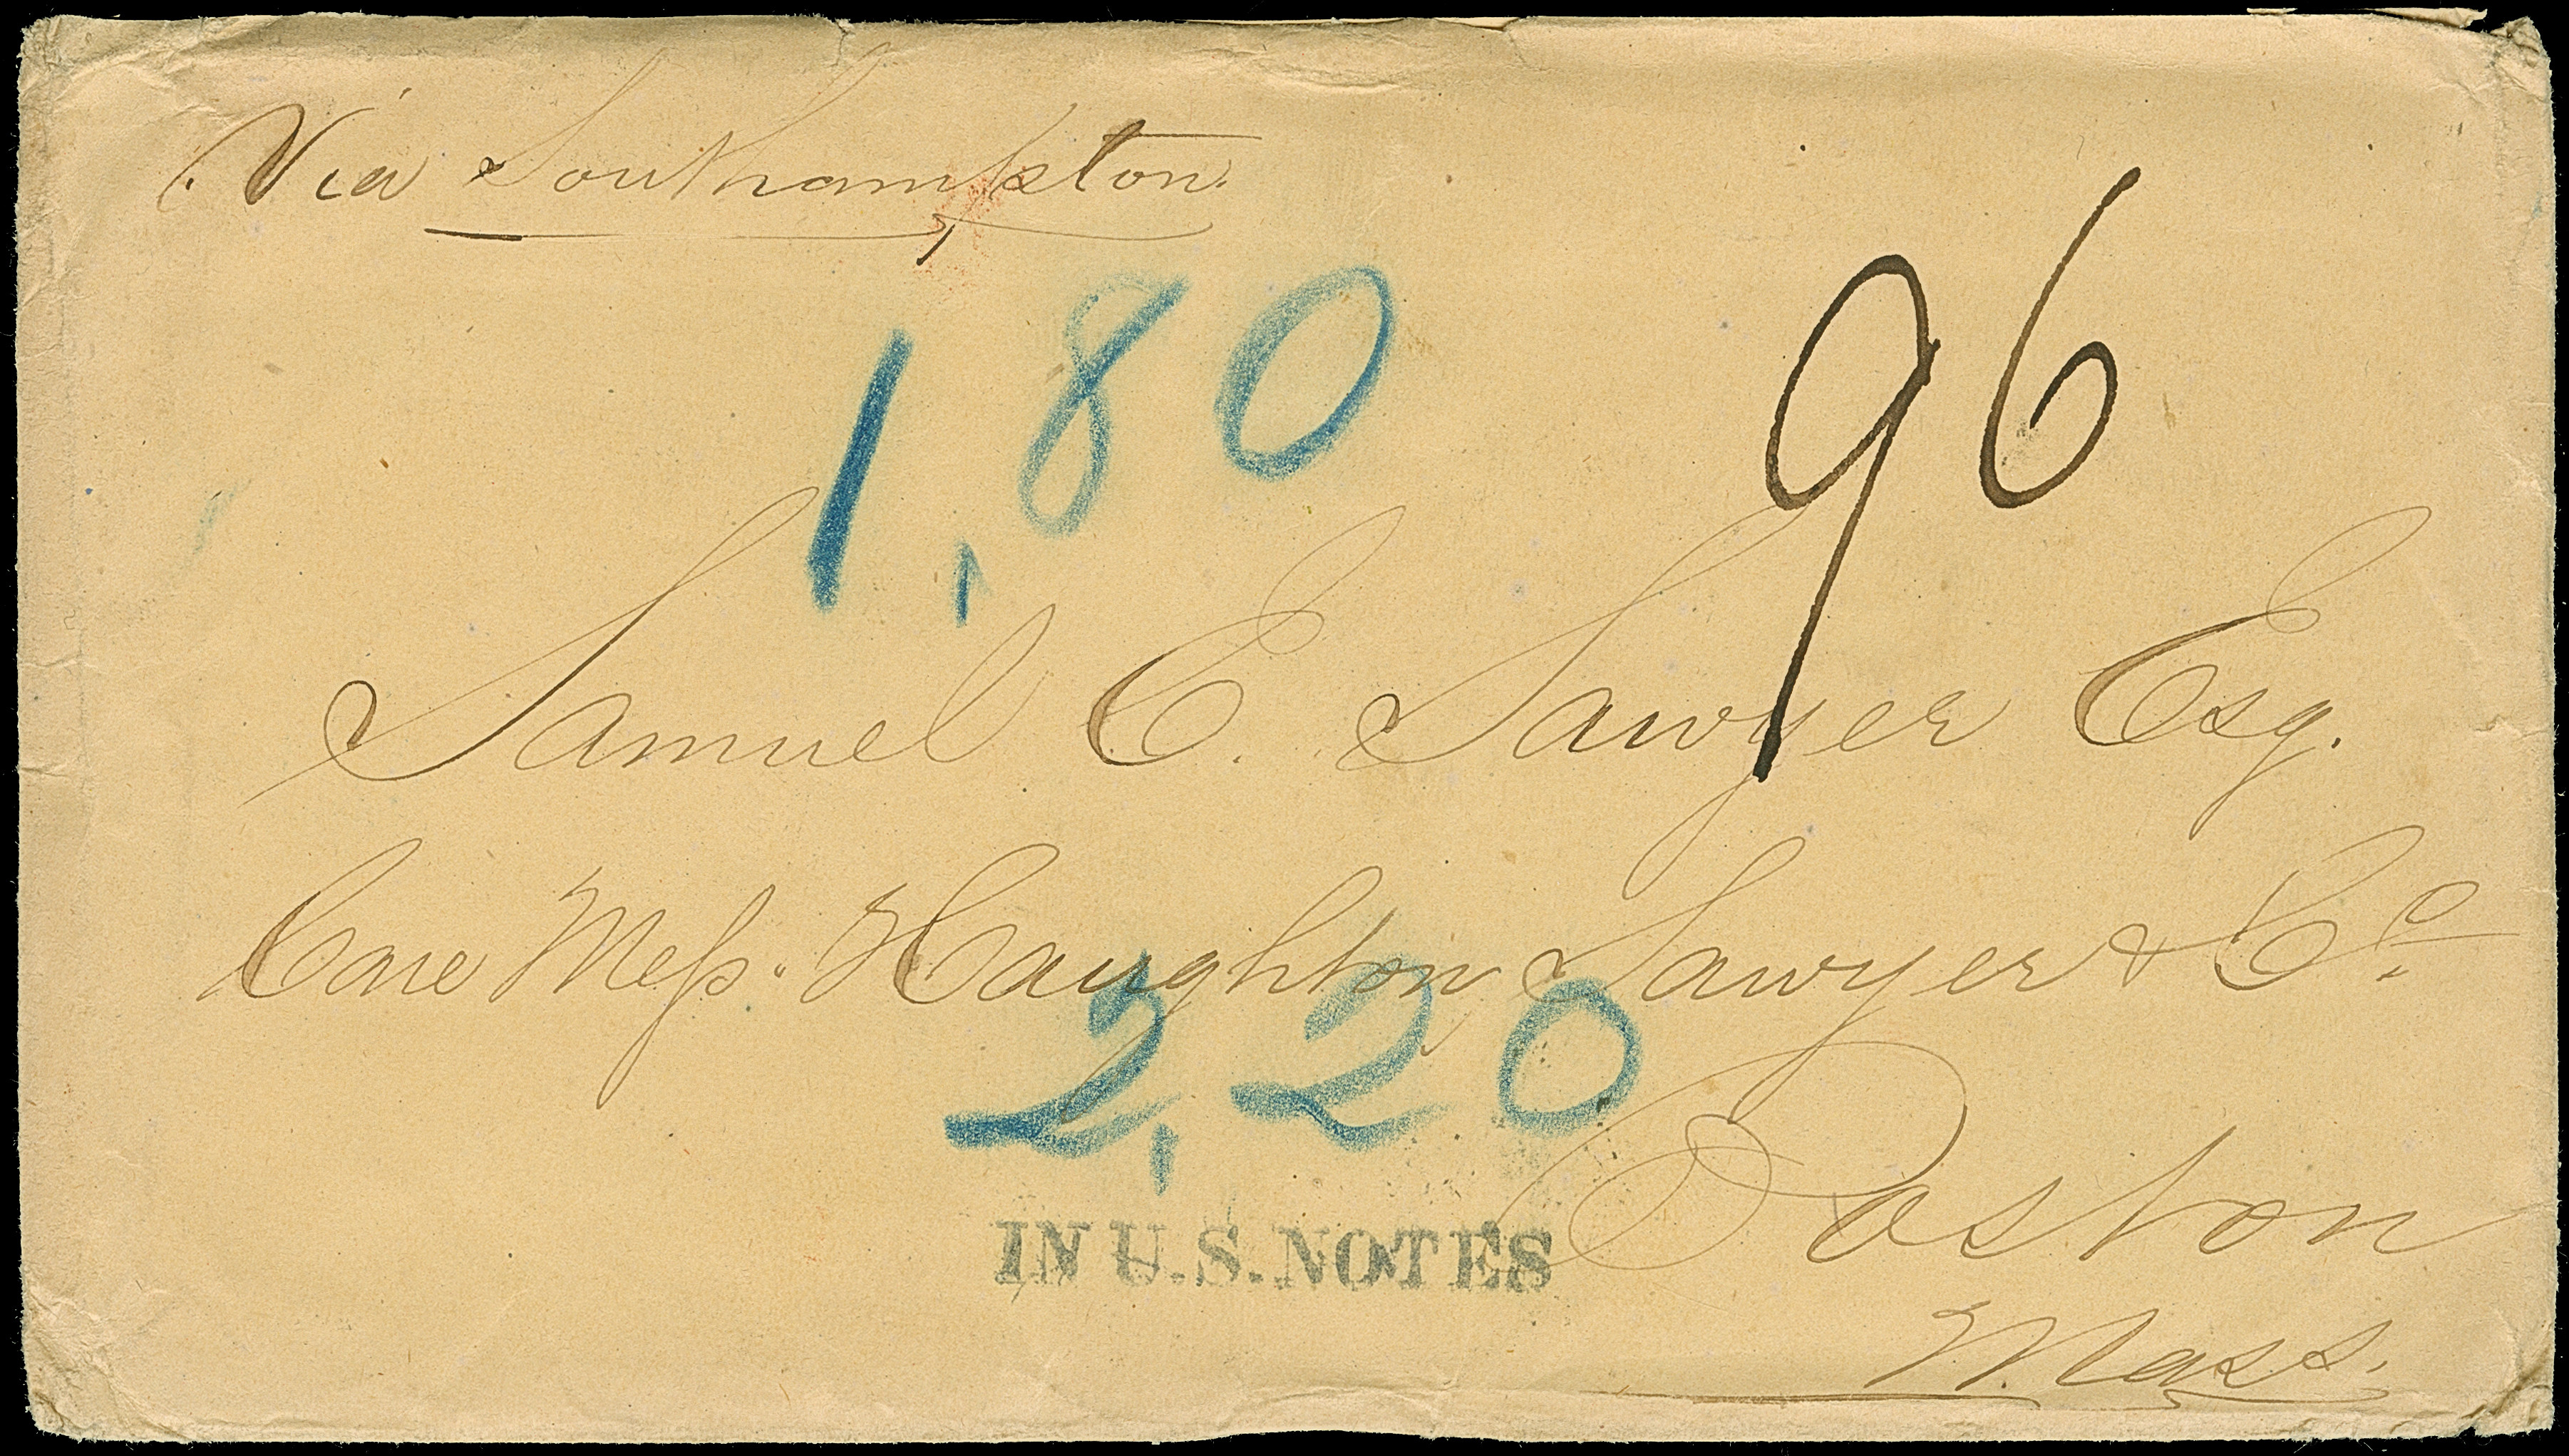 Via Southampton.
96
1,80
Samuel E. Sawyer Esq.
Care Mess. Haughton Sawyer & Co.
2,20
Boston
IN U.S. NOTES
Mass.